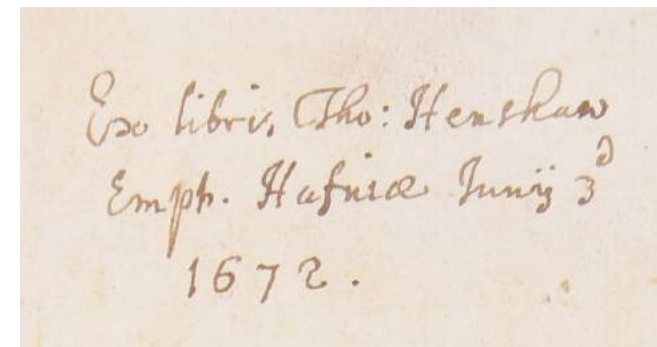 Ex libris Tho: Henshaw
Empt. Hafniæ Junij 3d
1672.